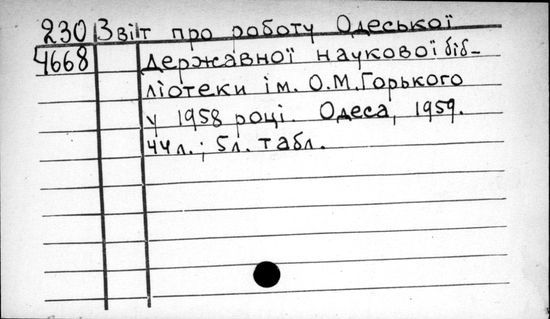 230 Звіт про роботу Одеської
4668 державної наукової біб-
ліотеки ім. О.М.Горького
у 1958 році. Одеса, 1959.
44 л.; 5 л. табл.